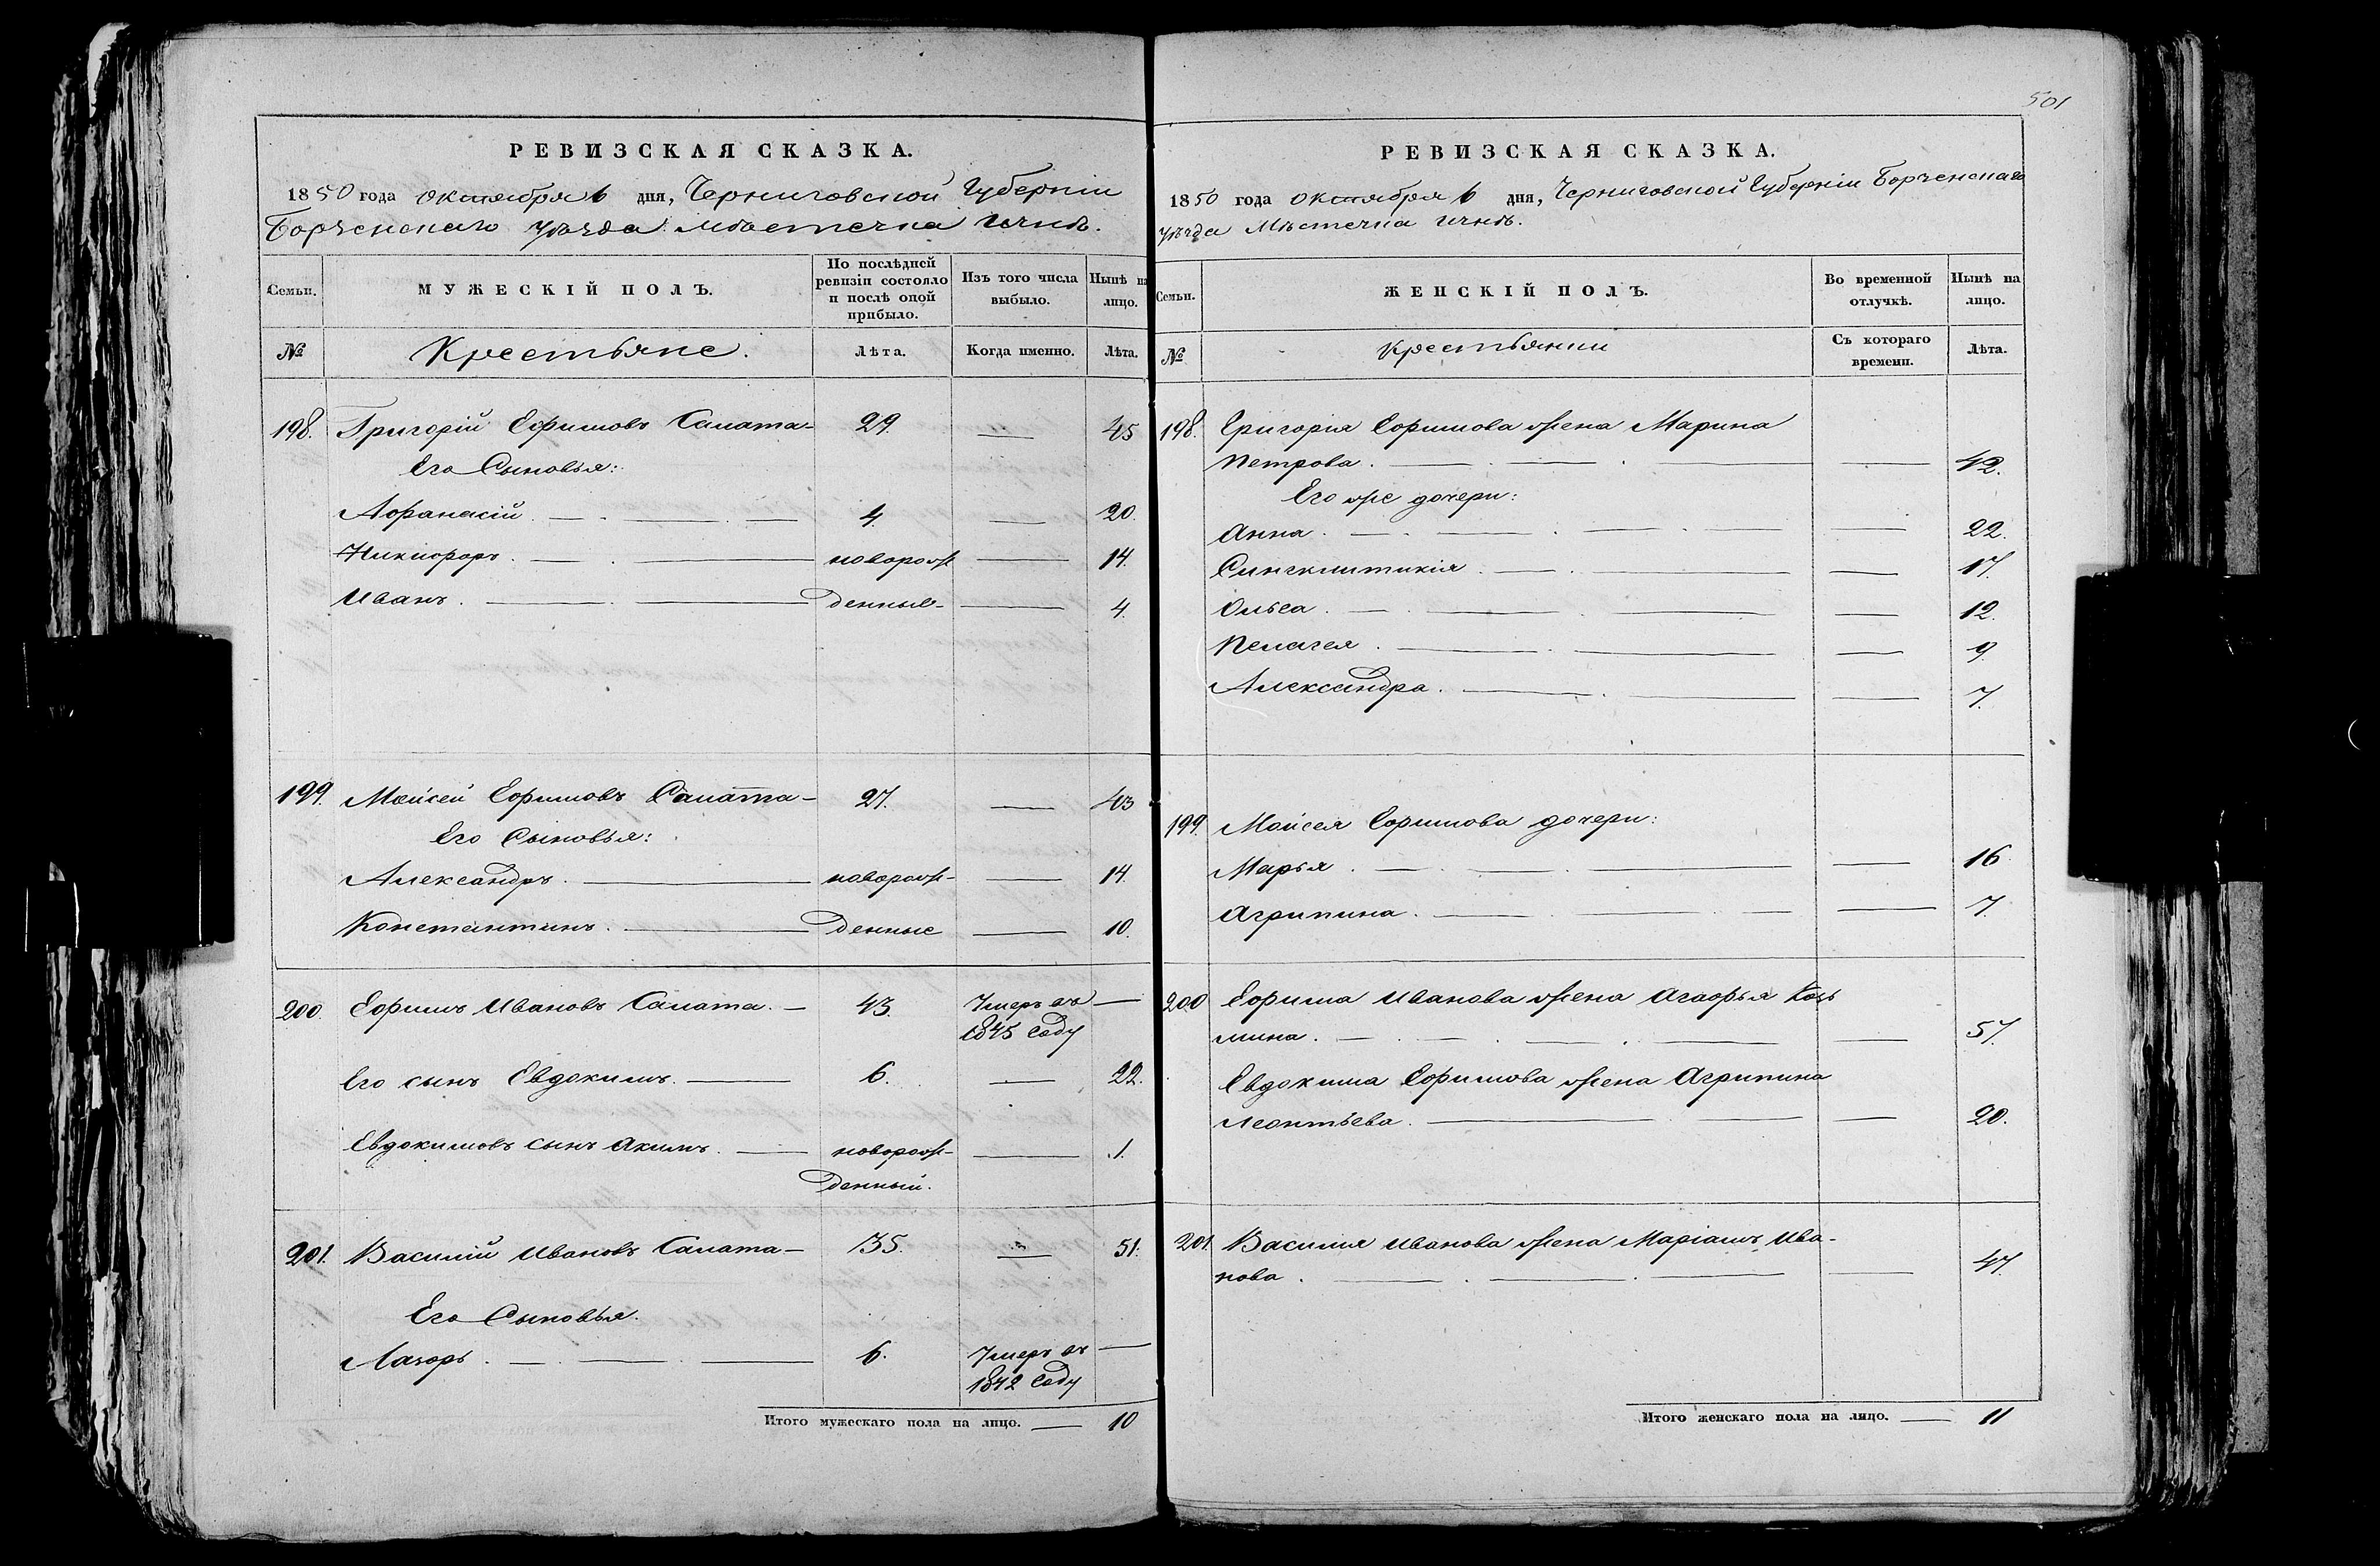 РЕВИЗСКАЯ СКАЗКА.
1850 года Октября 6 дня, Черниговской Губерніи
Борзенскаго уѣзда мѣстечка Ични.
Семьи.
МУЖЕСКІЙ ПОЛЪ.
По послѣдней
ревизіи состояло
и послѣ оной
прибыло.
Изъ того числа
выбыло.
Нынѣ на
лицо.
№
Крестьяне.
Лѣта.
Когда именно.
Лѣта.
198. Григорій Ефимовъ Салата 29. — 45
Его Сыновья:
Афанасій. — 4 — 20.
Никифоръ. — новорож — 14.
Иванъ. — денные — 4
199. Мойсей Ефимовъ Салата — 27. — 43
Его Сыновья:
Александръ. — новорож- — 14.
Константинъ. — денные — 10.
200. Ефимъ Ивановъ Салата. — 43. Умеръ въ —
1845 году
Его сынъ Евдокимъ. — 6. — 22.
Евдокимовъ сынъ Акимъ. — новорож- — 1.
денный.
201. Василій Ивановъ Салата — 35. — 51.
Его Сыновья.
Лазорь. — 6. Умеръ въ —
1842 году
Итого мужескаго пола на лицо. — 10
501
РЕВИЗСКАЯ СКАЗКА.
1850 года Октября 6 дня, Черниговской Губерніи Борзенскаго
уѣзда Мѣстечка Ични.
Семьи.
ЖЕНСКІЙ ПОЛЪ.
Во временной
отлучкѣ.
Нынѣ на
лицо.
№
Крестьянки
Съ котораго
времени.
Лѣта.
198. Григорія Ефимова жена Марина
Петрова. — — 42.
Его же дочери:
Анна. — — 22.
Синклитикія. — — 17.
Ольга. — — 12.
Пелагея. — — 9.
Александра. — — 7.
199. Мойсея Ефимова дочери:
Марья. — — 16
Агрипина. — — 7.
200 Ефима Иванова жена Агафья Козь
мина. — — 57.
Евдокима Ефимова жена Агрипина
Леонтьева. — — 20.
201. Василия Иванова жена Маріамъ Ива-
нова. — — 47.
Итого женскаго пола на лицо. — 11